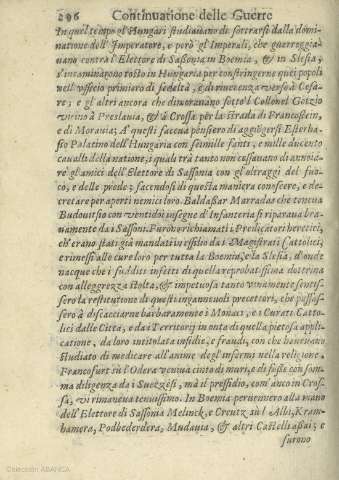 296 Continuatione delle Guerre
In quel tempo gl'Hungari studiauano di sottrarsi dalla domi-
natione dell'Imperatore, e però gl'Imperiali, che guerreggia-
uano contra l'Elettore di Sassonia in Boemia, & in Slesia,
s'incaminarono tosto in Hungaria per constringerne quei popoli
nell'vfficio primiero di fedeltà, e di riuerenza verso à Cesa-
re; e gl'altri ancora che dimorauano sotto'l Collonel Gotzio
vicino à Preslauia, & à Crossa per la strada di Francostein,
e di Morauia; A' questi faceua pensiero di aggiogersi Esterha-
sio Palatino dell'Hungaria con seimille fanti, e mille ducento
caualli della natione, i quali trà tanto non cessauano di annoie-
re gl'amici dell'Elettore di Sassonia con gl'oltraggi del fuo-
co, e delle prede; facendosi di questa maniera conoscere, e de-
cretare per aperti nemici loro. Baldassar Marradas che teneua
Buduuitsio con ventidoi insegne d'Infanteria si riparaua bra-
uamente da i Sassoni. Furono richiamati i Predicatori heretici,
ch'erano stati già mandati in essilio da i Magistrati Cattolici,
e rimessi alle cure loro per tutta la Boemia, e la Slesia, d'onde
nacque che i sudditi infetti di quella reprobatissima dottrina
con allegrezza stolta, & impetuosa tanto viuamente sentis-
sero la restitutione di questi ingannéuoli precettori, che passas-
sero à discacciarne barbaramente i Monaci, e i Curati Catto-
lici dalle Città, e da i Territorij in onta di quella pietosa appli-
catione, da loro intitolata insidie, e fraudi, con che haueuano
studiato di medicare all'anime degl'infermi nella religione.
Francofurt sù l'Odera veniua cinto di muri, e di fosse con som-
ma diligenza da i Suezzesi, mà il pressidio, com'anco in Cros-
sa, vi rimaneua tenuissimo. In Boemia peruennero alla mano
dell'Elettore di Sassonia Melinck, e Creutz sù l'Albi, Kram-
hamera, Podbederdera, Mudauia, & altri Castelli assai; e
furono
Colección ABANCA